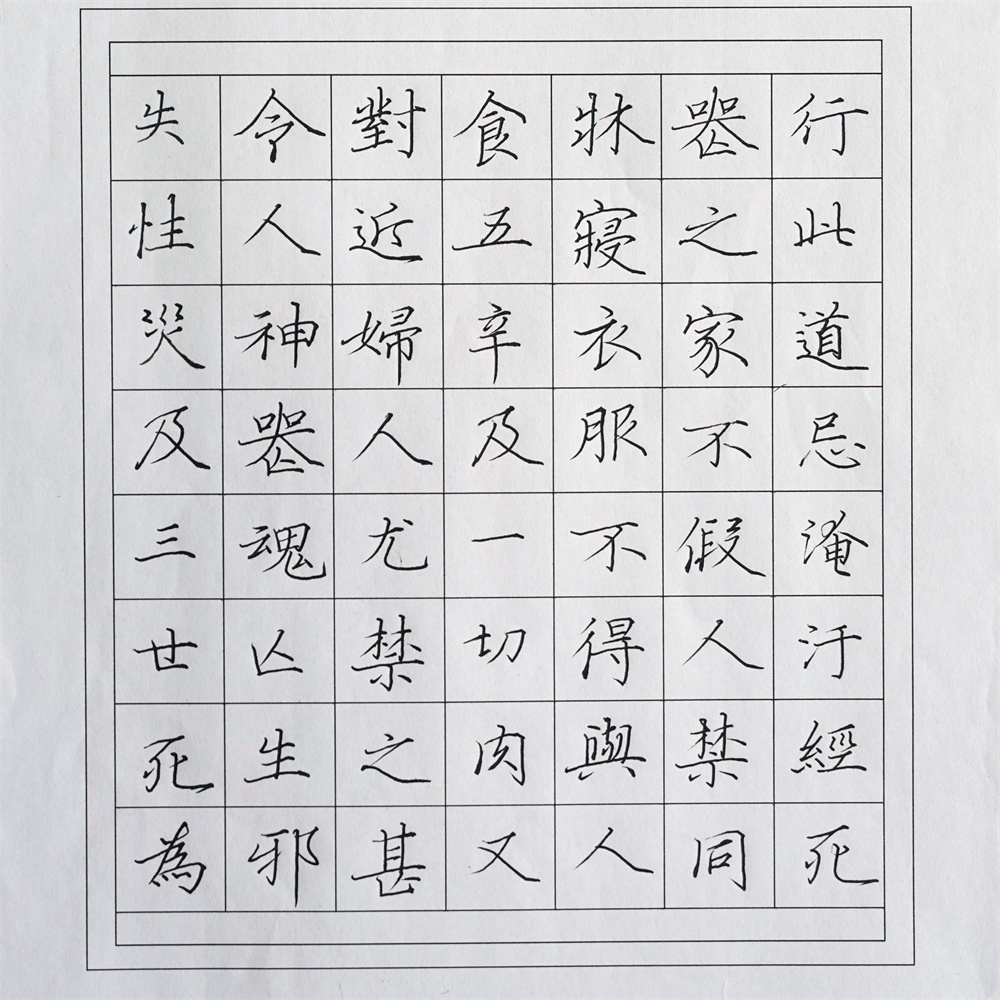 行此道忌淹汙經死
喪之家不假人禁同
牀寢衣服不得與人
食五辛及一切肉又
對近婦人尤禁之甚
令人神喪魂亾生邪
失性災及三世死為